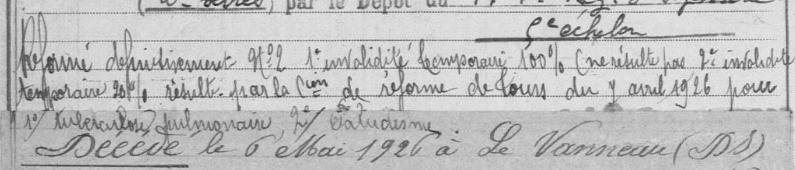 par le Dépôt du
5e échelon
Réformé définitivement No 2 1o invalidité temporaire 100% (ne résulte pas 2o invalidité
temporaire 20% résulte par la Cion de réforme de Tours du 7 avril 1926 pour
1o/ tuberculose pulmonaire, 2o/ Paludisme
Décédé le 6 Mai 1926 à Le Vanneau (DS)